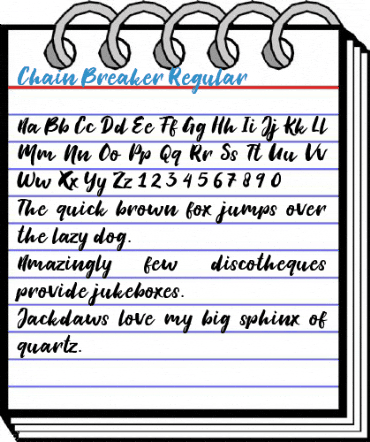 Chain Breaker Regular
Aa Bb Cc Dd Ee Ff Gg Hh Ii Jj Kk Ll
Mm Nn Oo Pp Qq Rr Ss Tt Uu Vv
Ww Xx Yy Zz 1 2 3 4 5 6 7 8 9 0
The quick brown fox jumps over
the lazy dog.
Amazingly few discotheques
provide jukeboxes.
Jackdaws love my big sphinx of
quartz.